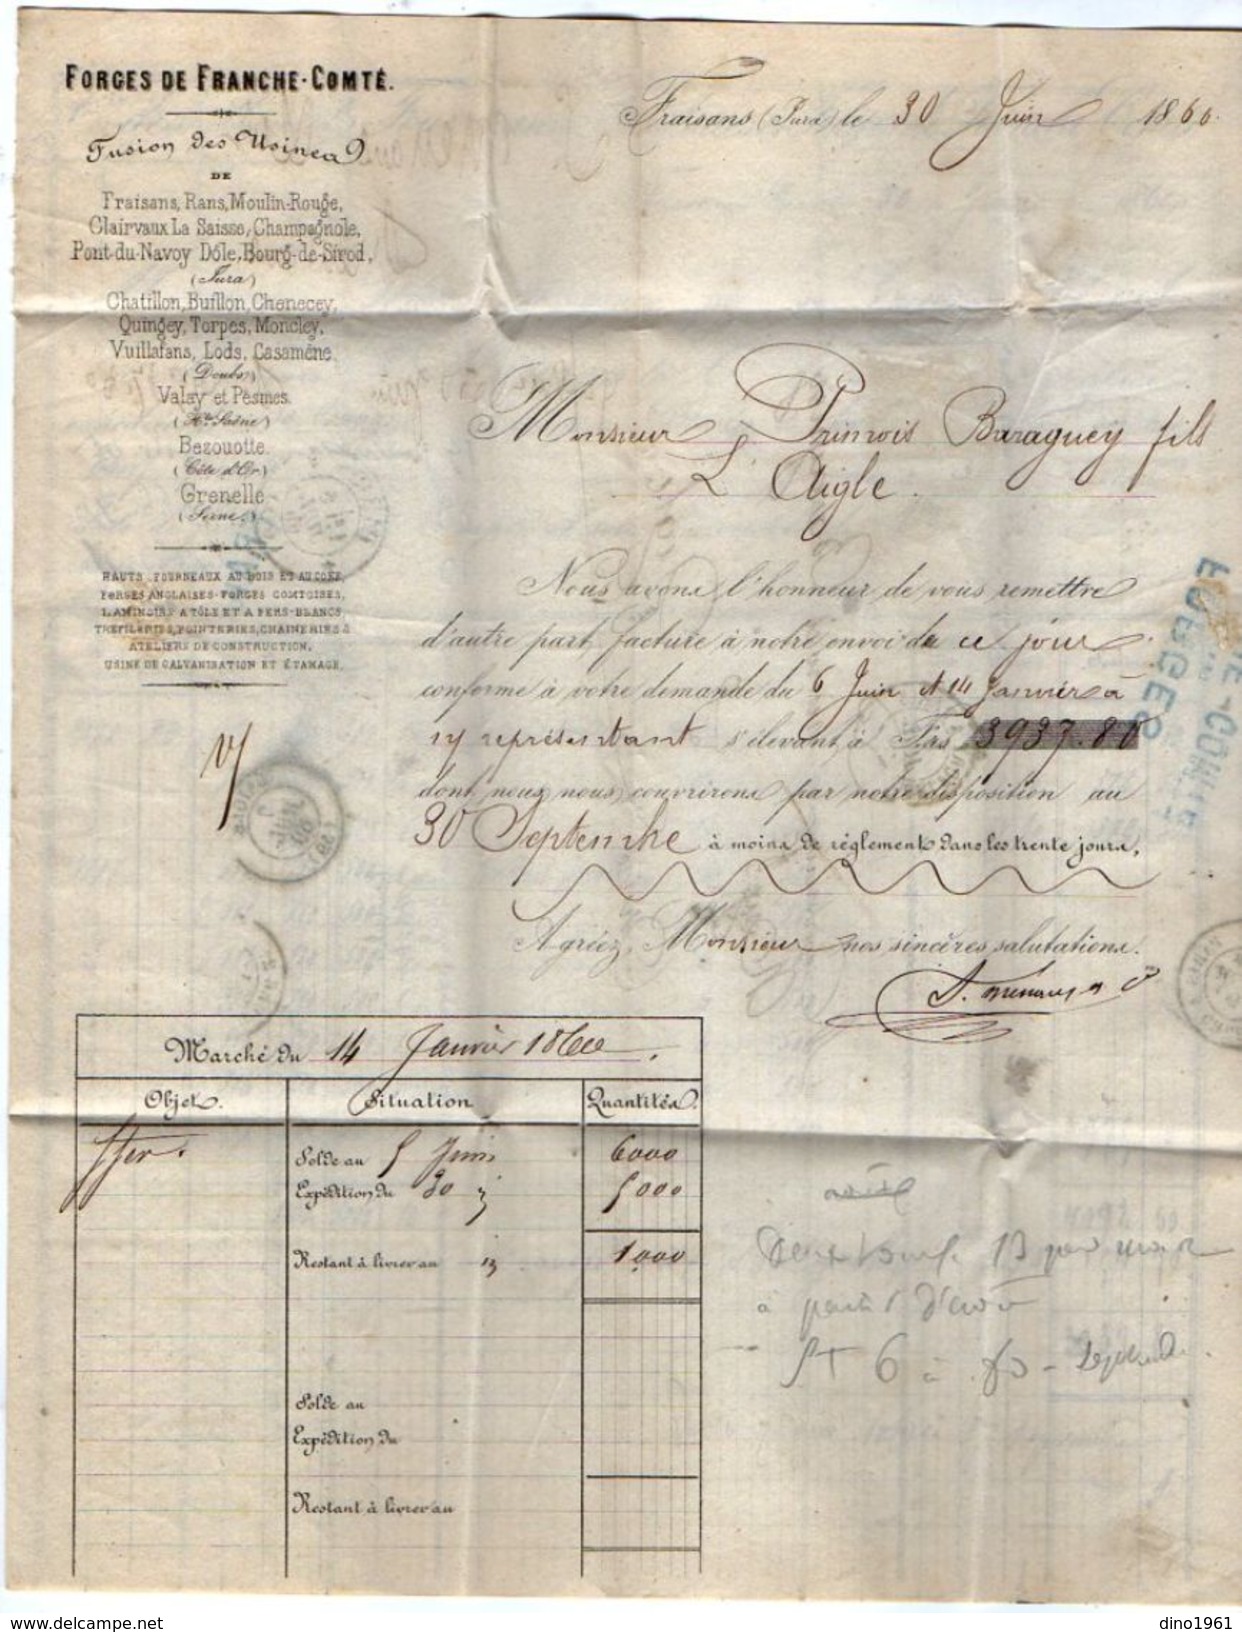 FORGES DE FRANCHE-COMTÉ.
Fusion des Usines
DE
Fraisans, Rans, Moulin-Rouge,
Clairvaux La Saisse, Champagnole,
Pont-du-Navoy Dôle, Bourg-de-Sirod,
(Jura)
Chatillon, Buillon, Chenecey,
Quingey, Torpes, Moncley,
Vuillafans, Lods, Casamène.
(Doubs)
Valay et Pesmes.
(Hte Saône)
Bezouotte.
(Côte d'Or)
Grenelle
(Seine.)
HAUTS FOURNEAUX AU BOIS ET AU COKE,
FORGES ANGLAISES-FORGES COMTOISES,
LAMINOIRS A TÔLE ET A FERS-BLANCS
TRÉFILERIES, POINTERIES, CHAINERIES &
ATELIERS DE CONSTRUCTION,
USINE DE GALVANISATION ET ÉTAMAGE.
Fraisans (Jura) le 30 Juin 1860.
Monsieur Primois Baraguey fils
L'Aigle.
Nous avons l'honneur de vous remettre
d'autre part, facture à notre envoi de ce jour
conforme à votre demande du 6 Juin et 14 Janvier à
représentant s'élevant à F 3937.80
dont nous nous couvrirons par notre disposition au
30 Septembre à moins de réglement dans les trente jours,
Agréez, Monsieur nos sincères salutations.
Marché du 14 Janvier 1860.
Objet. Situation Quantités.
Fer. Solde au 5 Juin 6000
Expédition du 30 5000
Restant à livrer au 1000
Solde au
Expédition du
Restant à livrer au
à partir d'août
6 à
dino1961